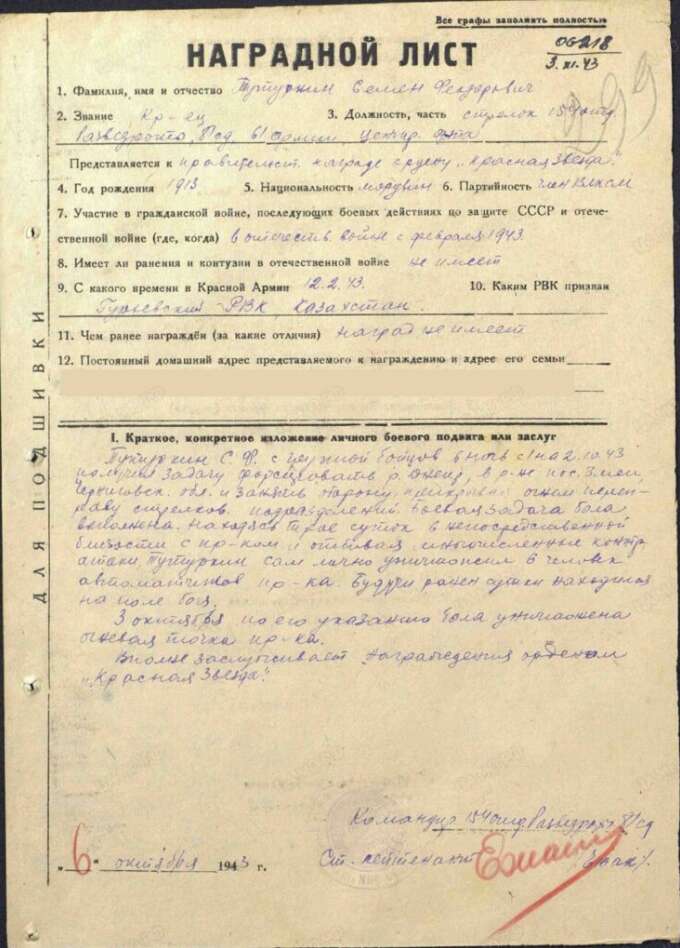 Все графы заполнить полностью
НАГРАДНОЙ ЛИСТ
3.XI.43
1. Фамилия, имя и отчество Тутуркин Семен Федорович
2. Звание Кр-ец 3. Должность, часть стрелок 154 отд.
Разведроты, сд, 61 армии, Центр. фнта
Представляется к правительст. награде ордену „Красная Звезда".
4. Год рождения 1913 5. Национальность мордвин 6. Партийность член ВЛКСМ
7. Участие в гражданской войне, последующих боевых действиях по защите СССР и отече-
ственной войне (где, когда) в отечеств. войне с февраля 1943.
8. Имеет ли ранения и контузии в отечественной войне не имеет
9. С какого времени в Красной Армии 12.2.43. 10. Каким РВК призван
РВК, Казахстан.
11. Чем ранее награждён (за какие отличия) наград не имеет
12. Постоянный домашний адрес представляемого к награждению и адрес его семьи
I. Краткое, конкретное изложение личного боевого подвига или заслуг
Тутуркин С.Ф. с группой бойцов в ночь с 1 на 2.10.43
получил задачу форсировать р. Днепр, в р-не пос.
обл. и занять оборону, прикрывая огнем переп-
раву стрелков. подразделений боевая задача была
выполнена. Находясь трое суток в непосредственной
близости с пр-ком и отбивая многочисленные контр
атаки, Тутуркин сам лично уничтожил 6 человек
автоматчиков пр-ка. Будучи ранен сутки находился
на поле боя.
3 октября по его указанию была уничтожена
огневая точка пр-ка.
Вполне заслуживает награждения орденом
„Красная Звезда".
Командир 154 отд. Разведроты сд
„6" октября 1943 г. Ст. лейтенант
ДЛЯ ПОДШИВКИ